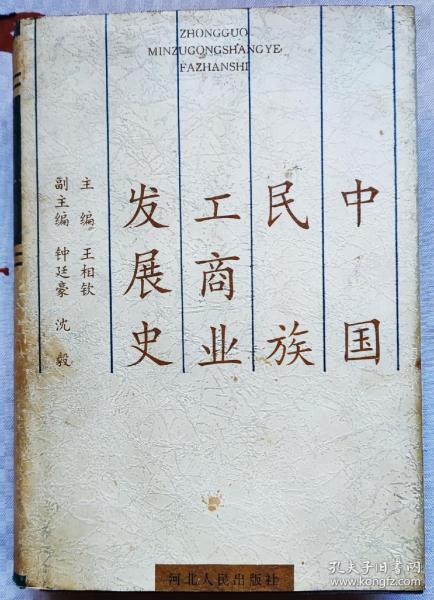 ZHONGGUO
MINZUGONGSHANGYE
FAZHANSHI
中国
民族
工商业
发展史
主编 王相钦
副主编 钟廷豪 沈毅
河北人民出版社
孔夫子旧书网
www.kongfz.com